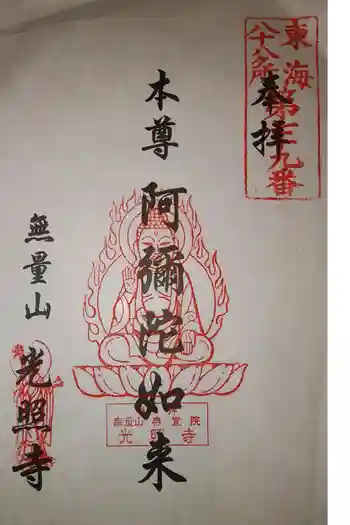 東海
八十八ヶ所
第三九番
奉拝
本尊 阿彌陀如来
無量山
光照寺
無量山 典堂院
光照寺